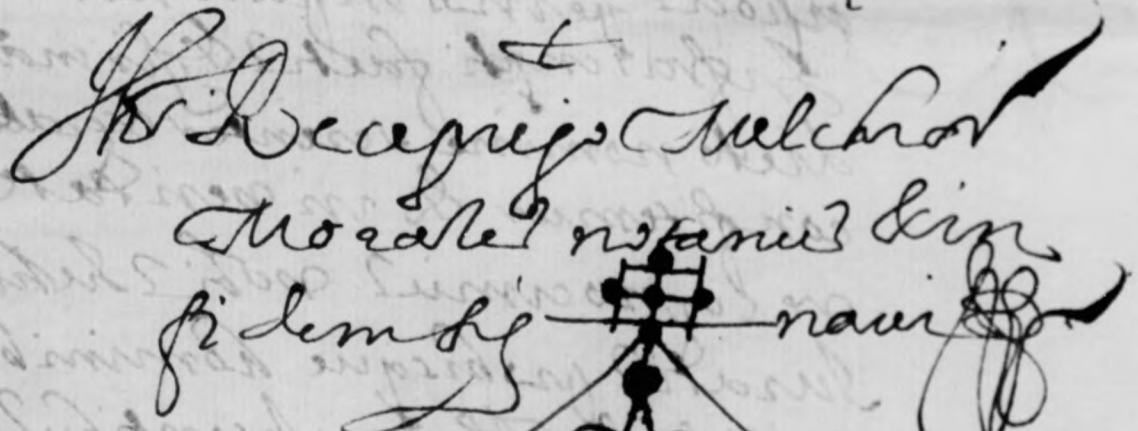 De cuprejo Melchor
Morales notarius & in
fidem sig navi